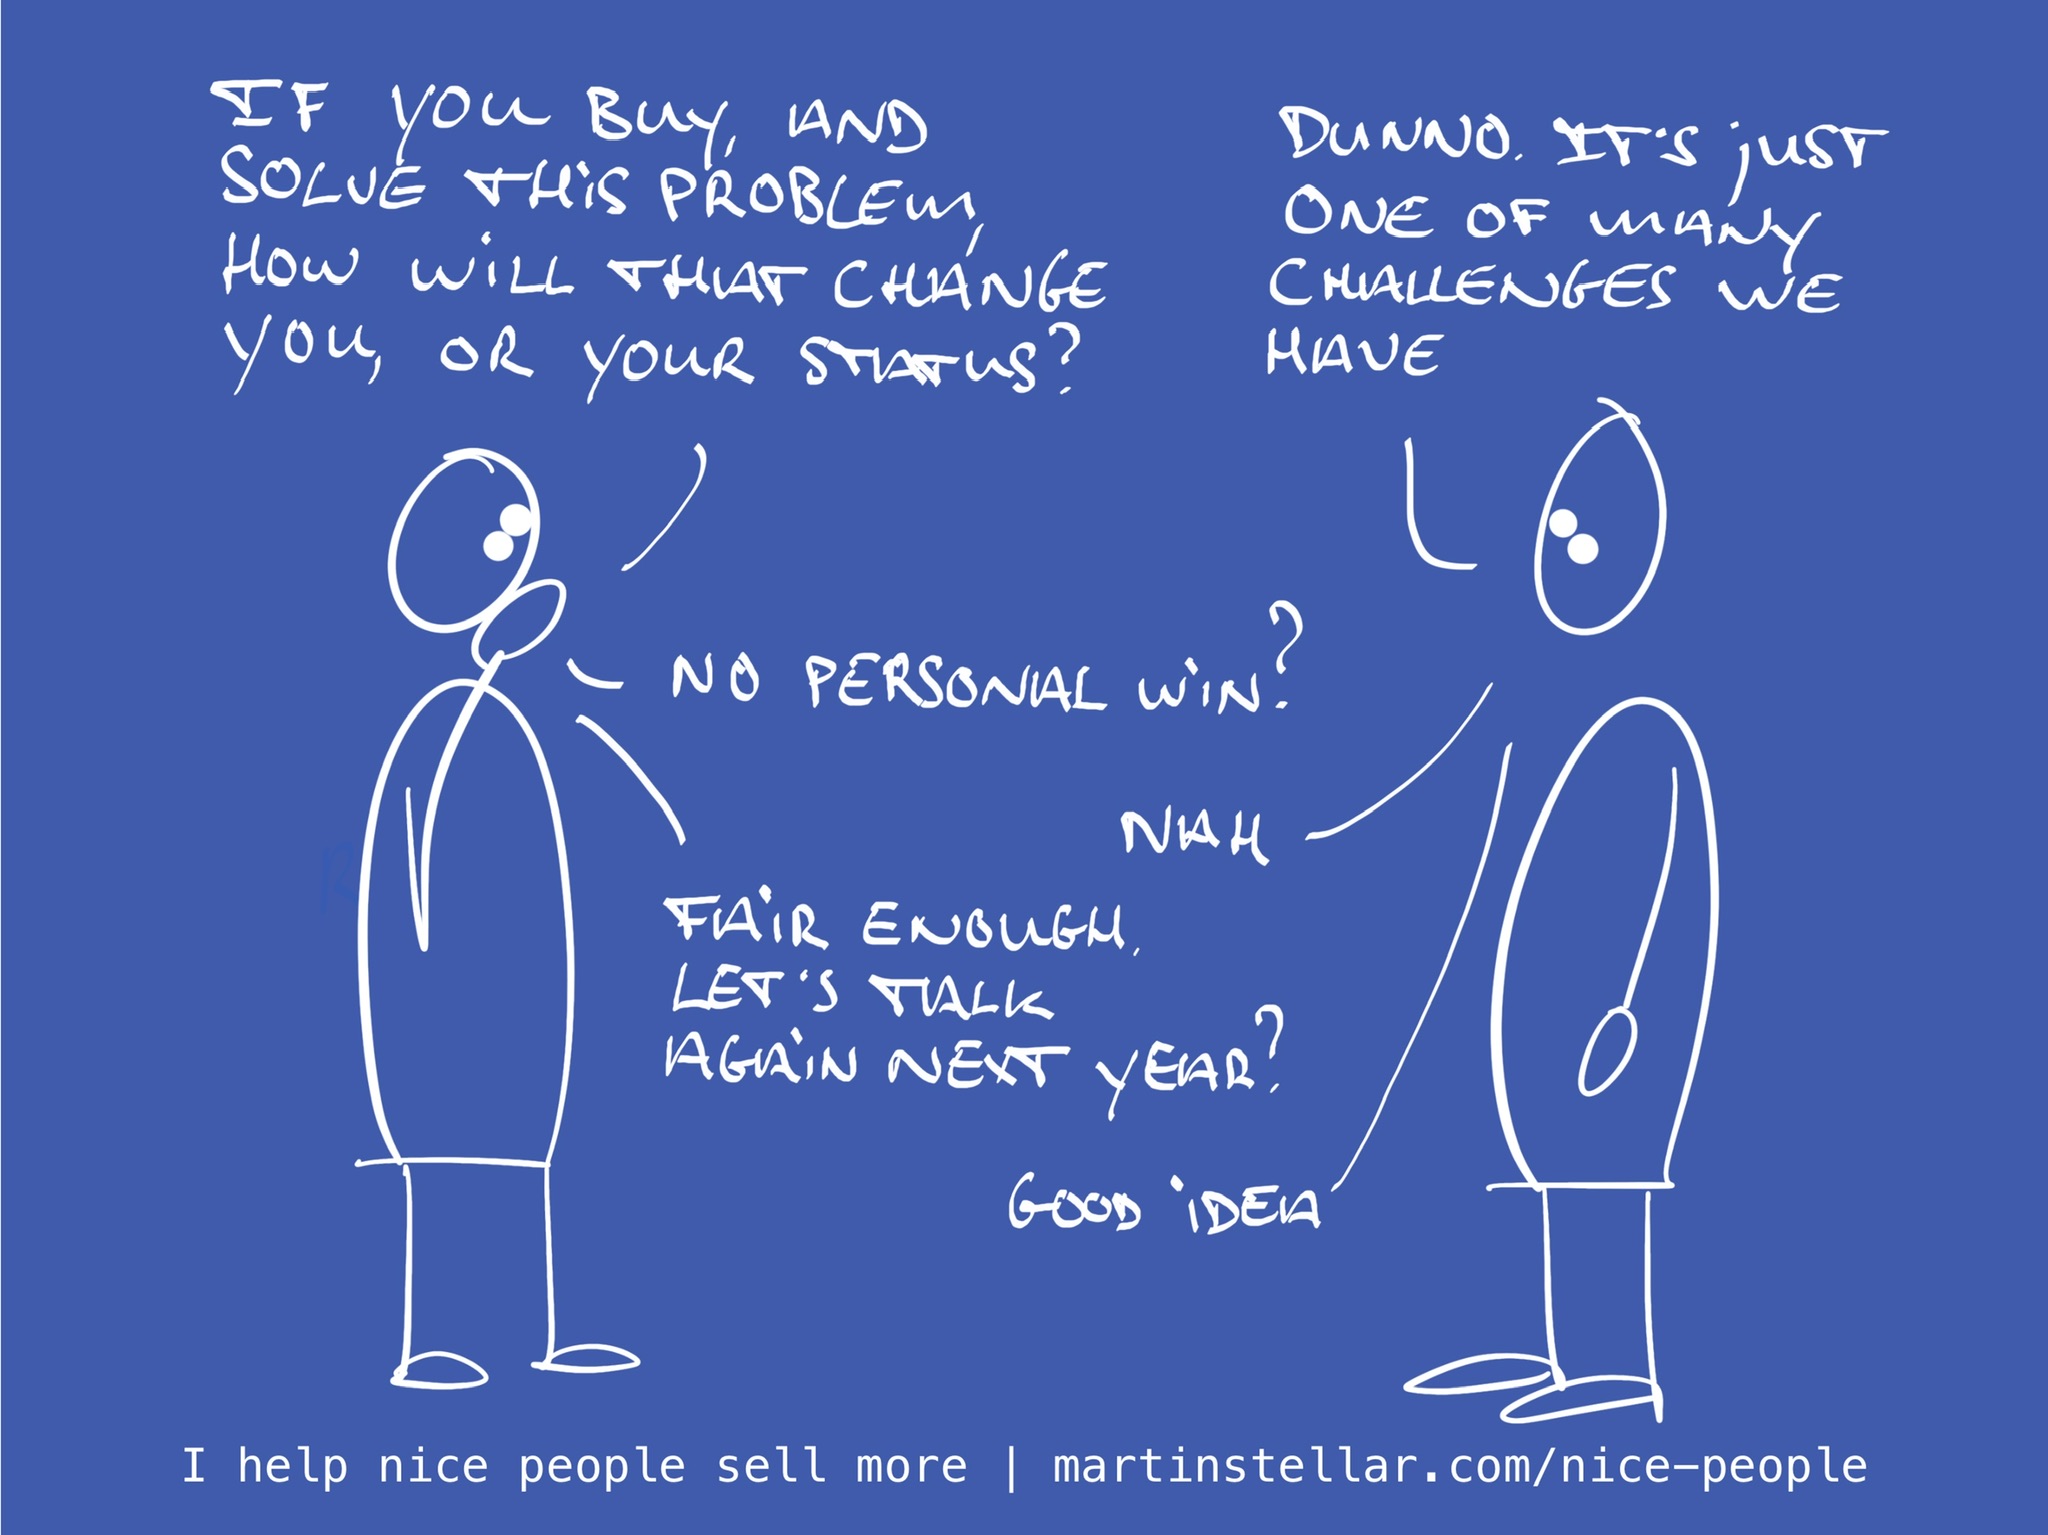 IF YOU BUY, AND
SOLVE THIS PROBLEM,
HOW WILL THAT CHANGE
YOU, OR YOUR STATUS?
DUNNO. IT'S JUST
ONE OF MANY
CHALLENGES WE
HAVE
NO PERSONAL WIN?
NAH
FAIR ENOUGH.
LET'S TALK
AGAIN NEXT YEAR?
GOOD IDEA
I help nice people sell more | martinstellar.com/nice-people